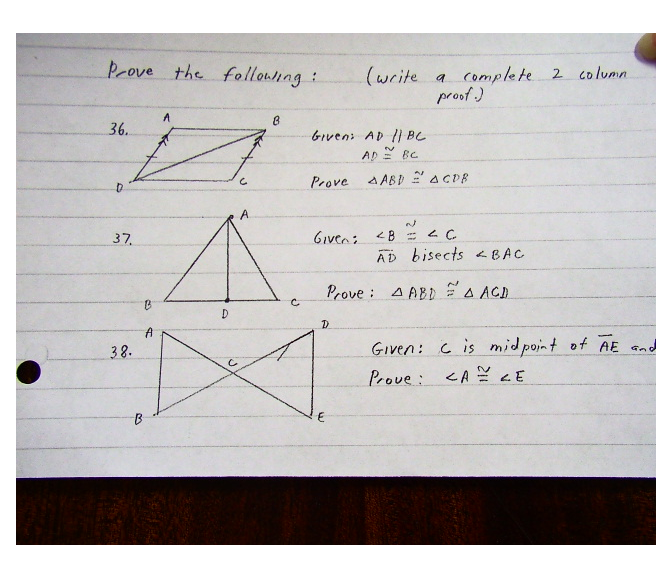 Prove the following: (write a complete 2 column
proof.)
36. A B D C Given: AD // BC
AD ≅ BC
Prove △ABD ≅ △CDB
37. A B D C Given: ∠B ≅ ∠C
A̅D̅ bisects ∠BAC
Prove: △ABD ≅ △ACD
38. A D C B E Given: C is midpoint of A̅E̅ and
Prove: ∠A ≅ ∠E